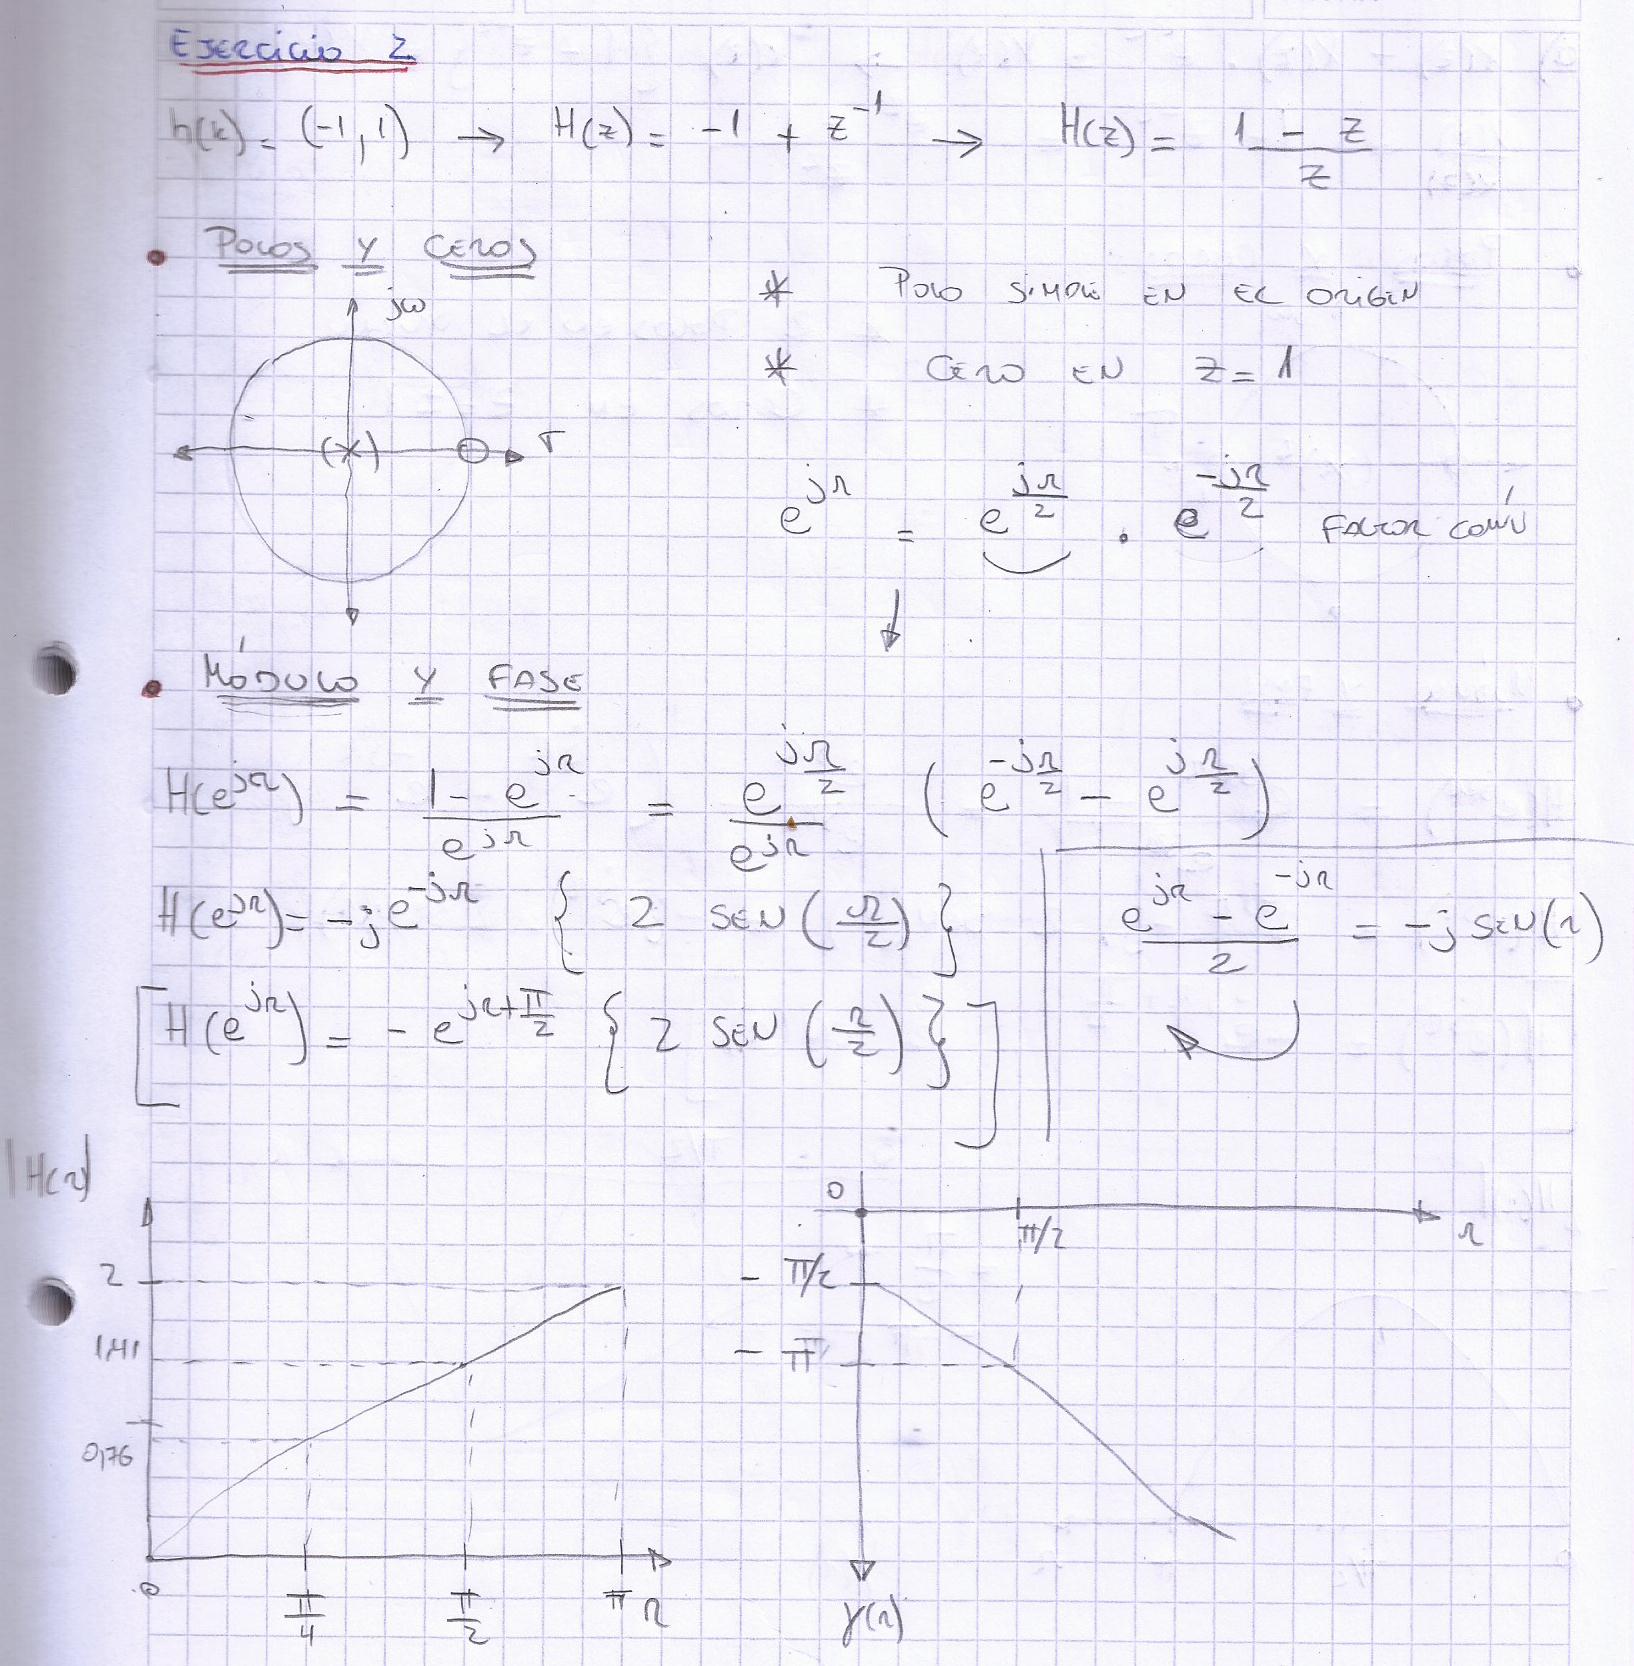 Ejercicio 2
h(k) = (-1, 1) → H(z) = -1 + z^-1 → H(z) = (1 - z)/z
• Polos y ceros
jω
σ
* Polo simple en el origen
* Cero en z = 1
e^(jΩ) = e^(jΩ/2) . e^(-jΩ/2) factor común
↓
• Módulo y fase
H(e^(jΩ)) = (1 - e^(jΩ))/e^(jΩ) = e^(jΩ/2)/e^(jΩ) (e^(-jΩ/2) - e^(jΩ/2))
H(e^(jΩ)) = -j e^(-jΩ) { 2 sen(Ω/2) }
(e^(jΩ) - e^(-jΩ))/2 = -j sen(Ω)
[H(e^(jΩ)) = - e^(jΩ+π/2) { 2 sen(Ω/2) }]
|H(Ω)
2
1,41
0,76
0
π/4
π/2
π
Ω
0
π/2
Ω
- π/2
- π
γ(Ω)